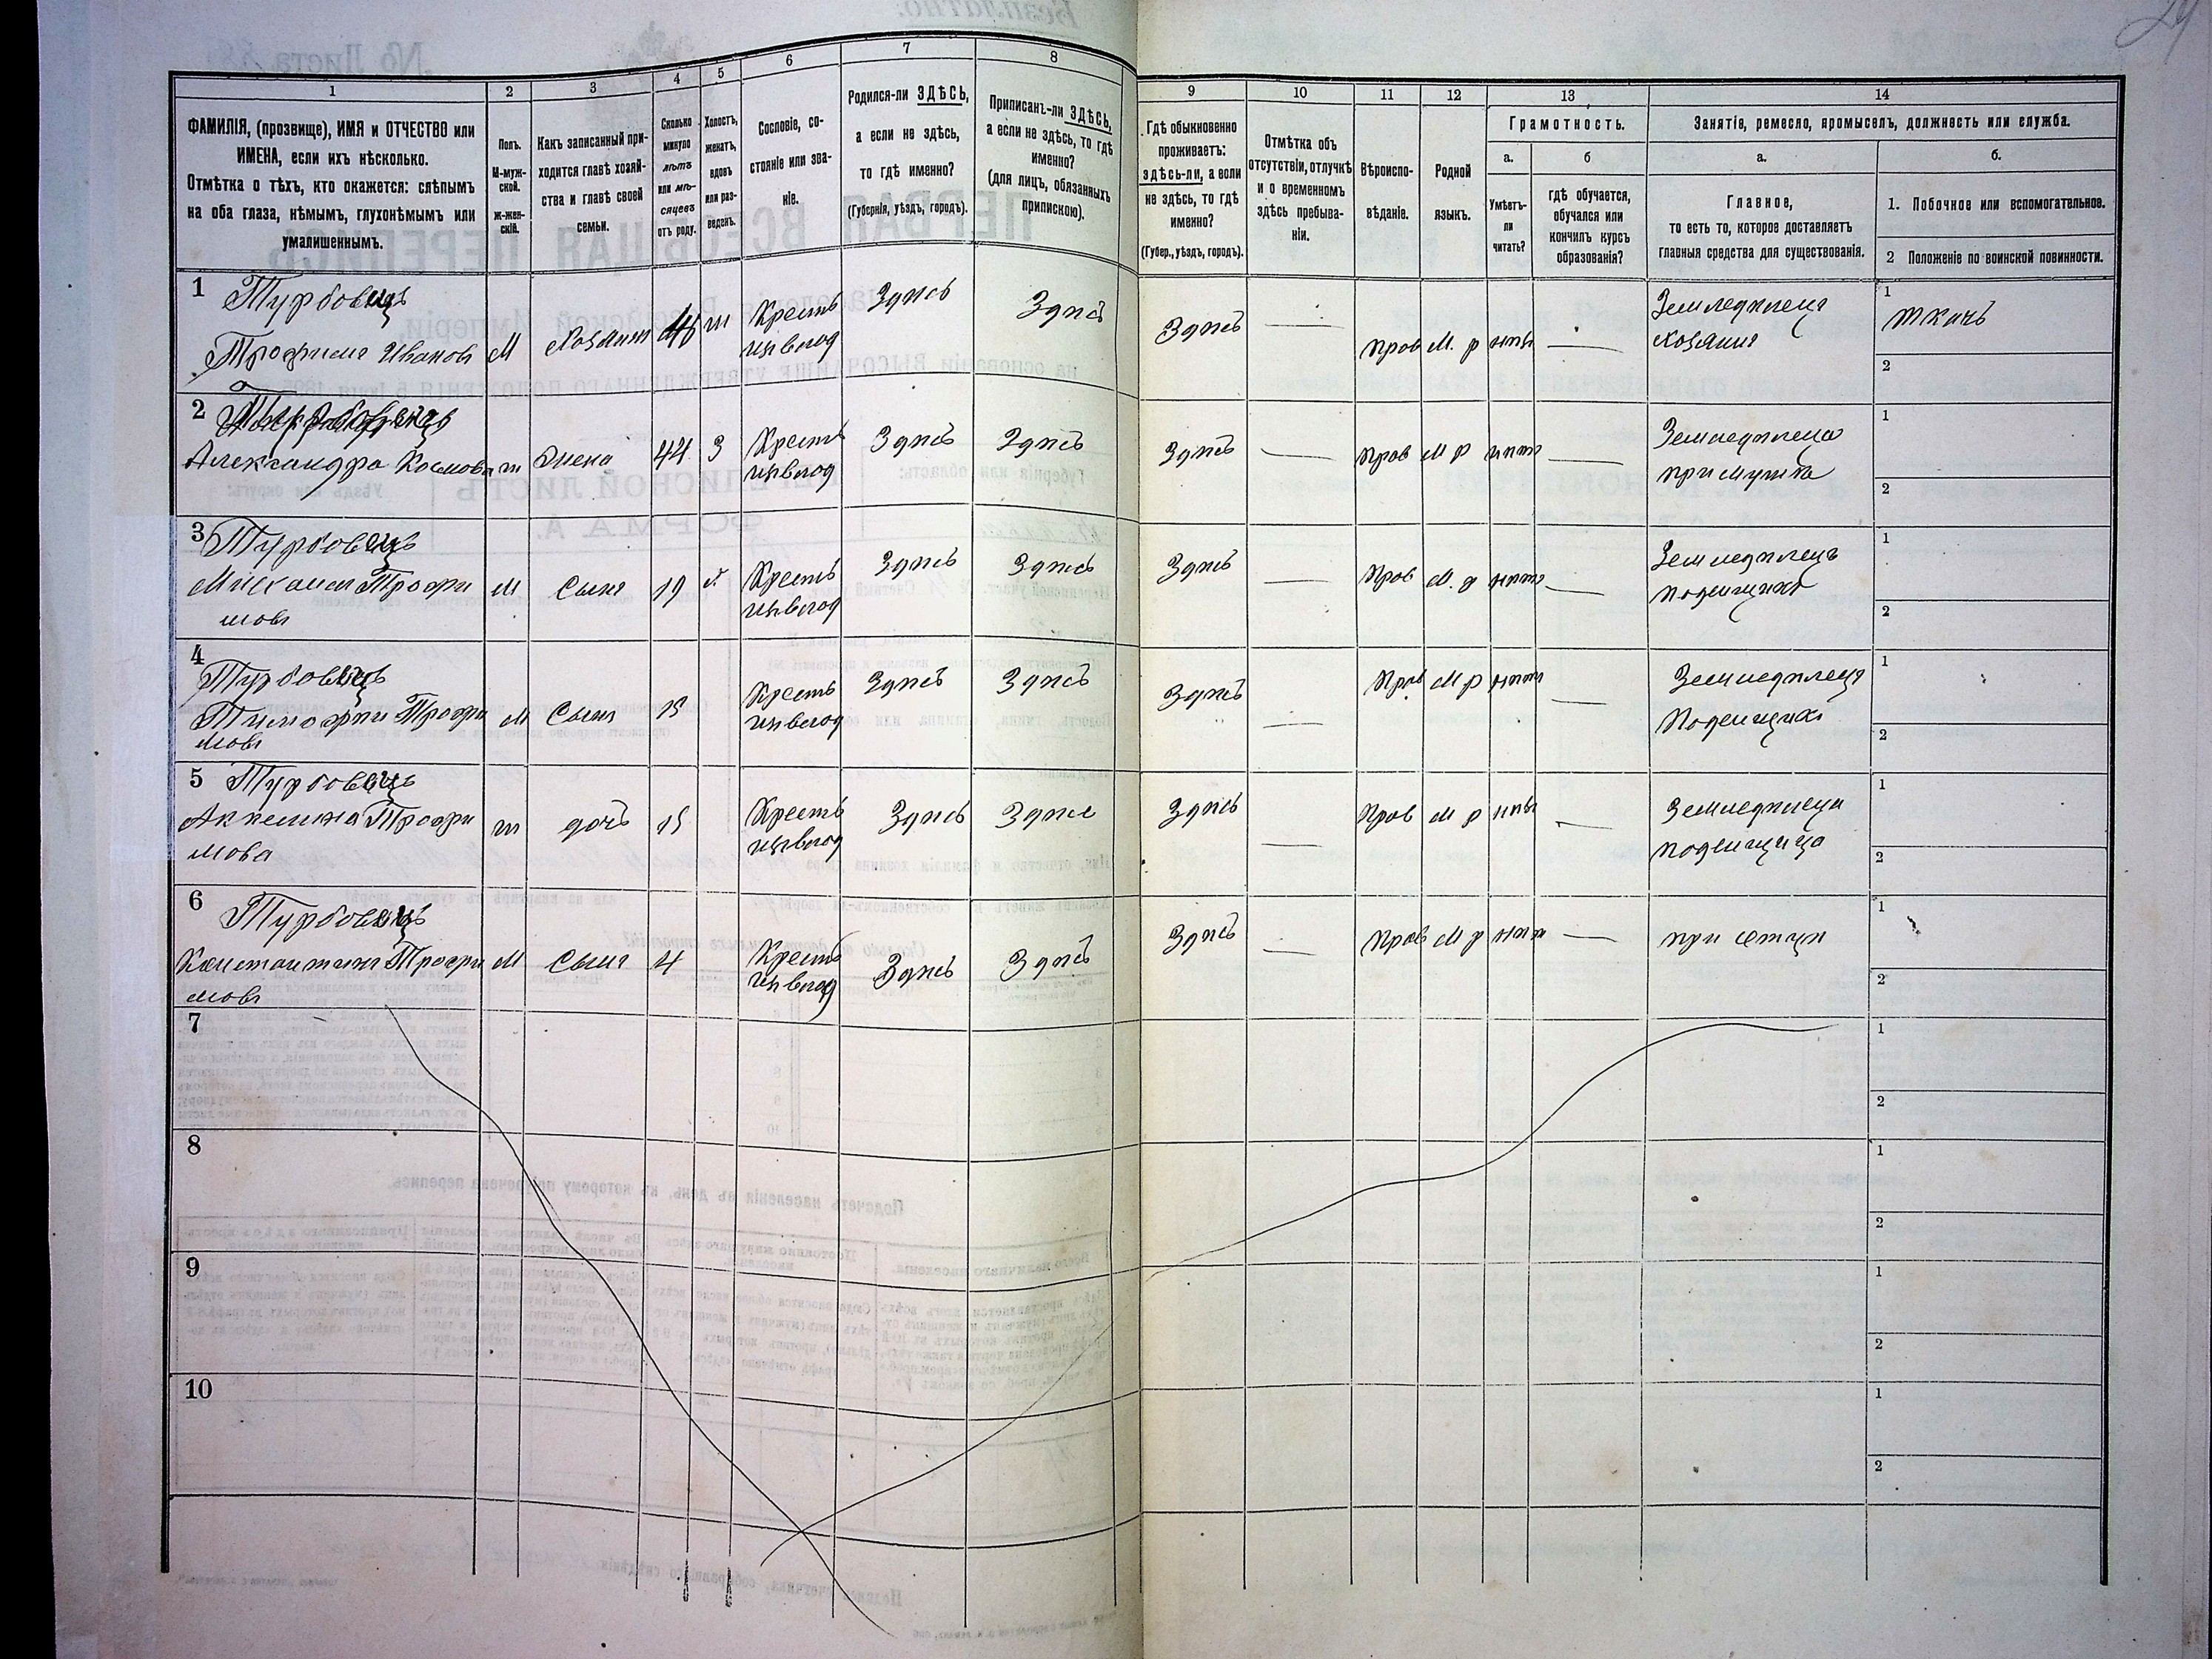 1
2
3
4
5
6
7
8
9
10
11
12
13
14
ФАМИЛІЯ, (прозвище), ИМЯ и ОТЧЕСТВО или
ИМЕНА, если ихъ нѣсколько.
Отмѣтка о тѣхъ, кто окажется: слѣпымъ
на оба глаза, нѣмымъ, глухонѣмымъ или
умалишеннымъ.
Полъ.
М-муж-
ской.
ж-жен-
скій.
Какъ записанный при-
ходится главѣ хозяй-
ства и главѣ своей
семьи.
Сколько
минуло
лѣтъ
или мѣ-
сяцевъ
отъ роду.
Холостъ,
женатъ,
вдовъ
или раз-
веденъ.
Сословіе, со-
стояніе или зва-
ніе.
Родился-ли ЗДѢСЬ,
а если не здѣсь,
то гдѣ именно?
(Губернія, уѣздъ, городъ).
Приписанъ-ли ЗДѢСЬ,
а если не здѣсь, то гдѣ
именно?
(для лицъ, обязанныхъ
припискою).
Гдѣ обыкновенно
проживаетъ:
здѣсь-ли, а если
не здѣсь, то гдѣ
именно?
(Губер., уѣздъ, городъ).
Отмѣтка объ
отсутствіи, отлучкѣ
и о временномъ
здѣсь пребыва-
ніи.
Вѣроиспо-
вѣданіе.
Родной
языкъ.
Грамотность.
а.
б
Умѣетъ-
ли
читать?
гдѣ обучается,
обучался или
кончилъ курсъ
образованія?
Занятія, ремесло, промыселъ, должность или служба.
а.
б.
Главное,
то есть то, которое доставляетъ
главныя средства для существованія.
1. Побочное или вспомогательное.
2 Положеніе по воинской повинности.
1
Турбовецъ
Трофимъ Ивановъ
М
Хозяинъ
ж
Крестъ
Здѣсь
Здѣсь
Здѣсь
Прав
М. р
нѣтъ
Земледѣлецъ
хозяинъ
1
ткачъ
2
2
Александра Космова
ж
Жена
44
З
Крестъ
Здѣсь
Здѣсь
Здѣсь
Прав
М р
нѣтъ
Земледѣлецъ
при мужѣ
1
2
3
Турбовецъ
Михаилъ Трофи
мовъ
М
Сынъ
19
Х
Крестъ
Здѣсь
Здѣсь
Здѣсь
Прав
М. р
нѣтъ
Земледѣлецъ
поденщикъ
1
2
4
Турбовецъ
Тимофѣй Трофи
мовъ
М
Сынъ
15
Крестъ
Здѣсь
Здѣсь
Здѣсь
Прав
М р
нѣтъ
Земледѣлецъ
Поденщикъ
1
2
5
Турбовецъ
Акилина Трофи
мова
ж
дочь
Крестъ
Здѣсь
Здѣсь
Здѣсь
Прав
М р
нѣтъ
Земледѣлецъ
поденщица
1
2
6
Турбовецъ
Константинъ Трофи
мовъ
М
Сынъ
4
Крестъ
Здѣсь
Здѣсь
Здѣсь
Прав
М р
нѣтъ
при отцѣ
1
2
7
1
2
8
1
2
9
1
2
10
1
2